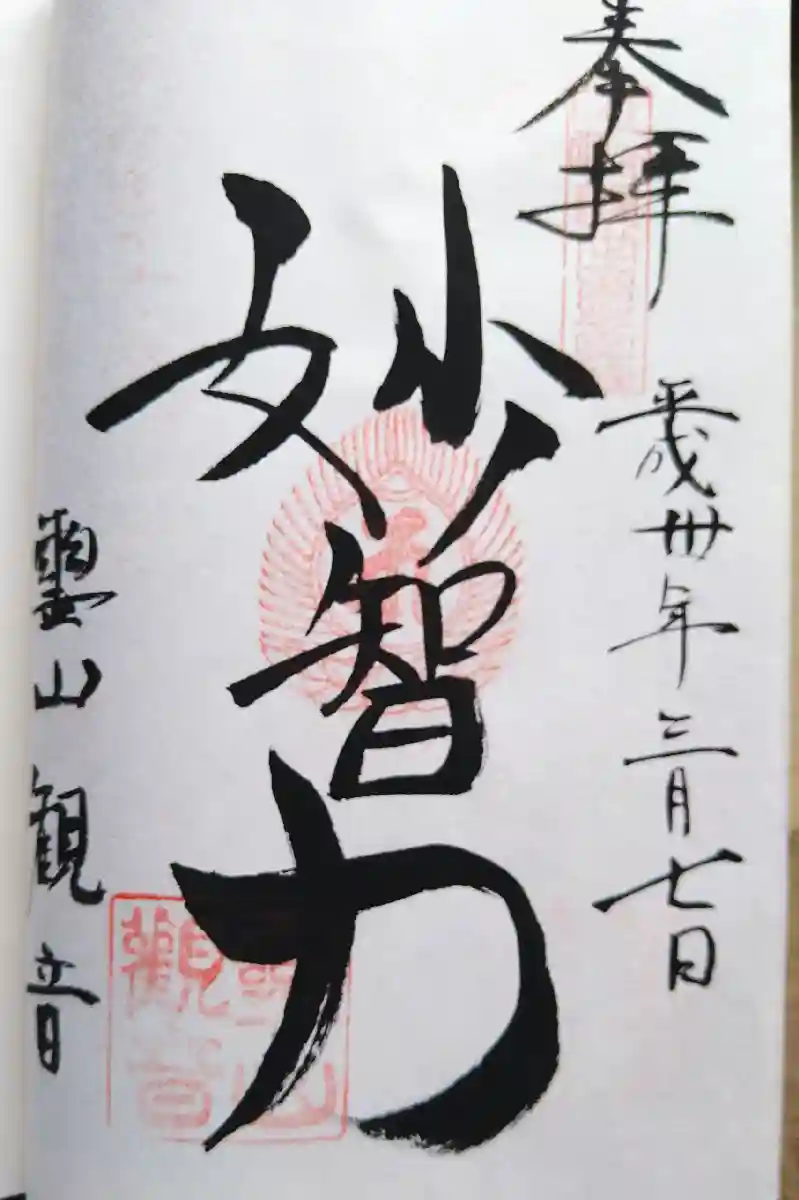 奉拝
平成卅年三月七日
妙智力
靈山観音
觀音